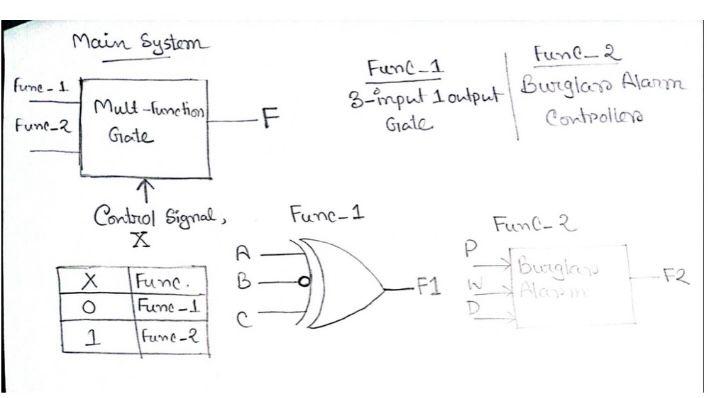 Main System
Func-1
Func-2
Mult-function
Gate
F
Control Signal,
X
X Func.
0 Func-1
1 Func-2
Func-1
3-input 1 output
Gate
Func-2
Burglar Alarm
Controller
Func-1
A
B
C
F1
Func-2
P
W
D
Burglar
Alarm
F2